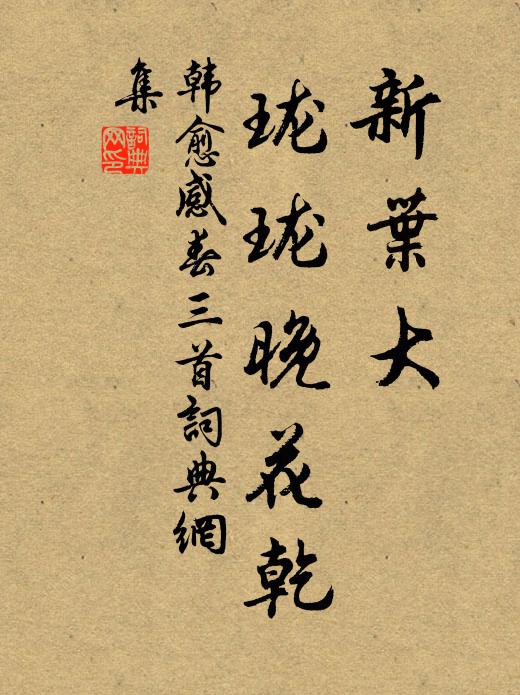 新葉大
珑珑晚花乾
韩愈感春三首詞典網
集
詞典
网印